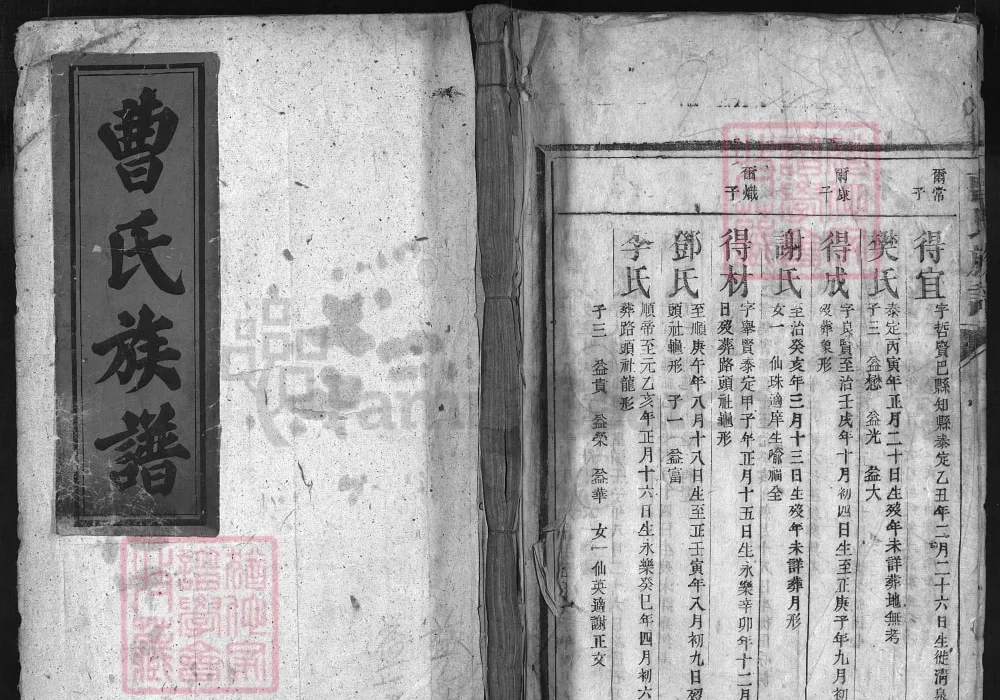 曹氏族譜
爾常
子
得宜
字哲賢巴縣知縣泰定乙丑年二月二十六日生徙清泉
樊氏
泰定丙寅年正月二十日生歿年未詳葬地無考
子三 益懋 益光 益大
爾康
子
得成
字良賢至治壬戌年十月初四日生至正庚子年九月初
歿葬象形
謝氏
至治癸亥年三月十三日生歿年未詳葬月形
女一 仙珠適庠生
爾熾
子
得材
字舉賢泰定甲子年正月十五日生永樂辛卯年十二月
日歿葬路頭社龜形
鄧氏
至順庚午年八月十八日生至正壬寅年八月初九日歿
頭社龜形 子一 益富
李氏
順帝至元乙亥年正月十六日生永樂癸巳年四月初六
葬路頭社龍形
子三 益貴 益榮 益華 女一仙英適謝正文